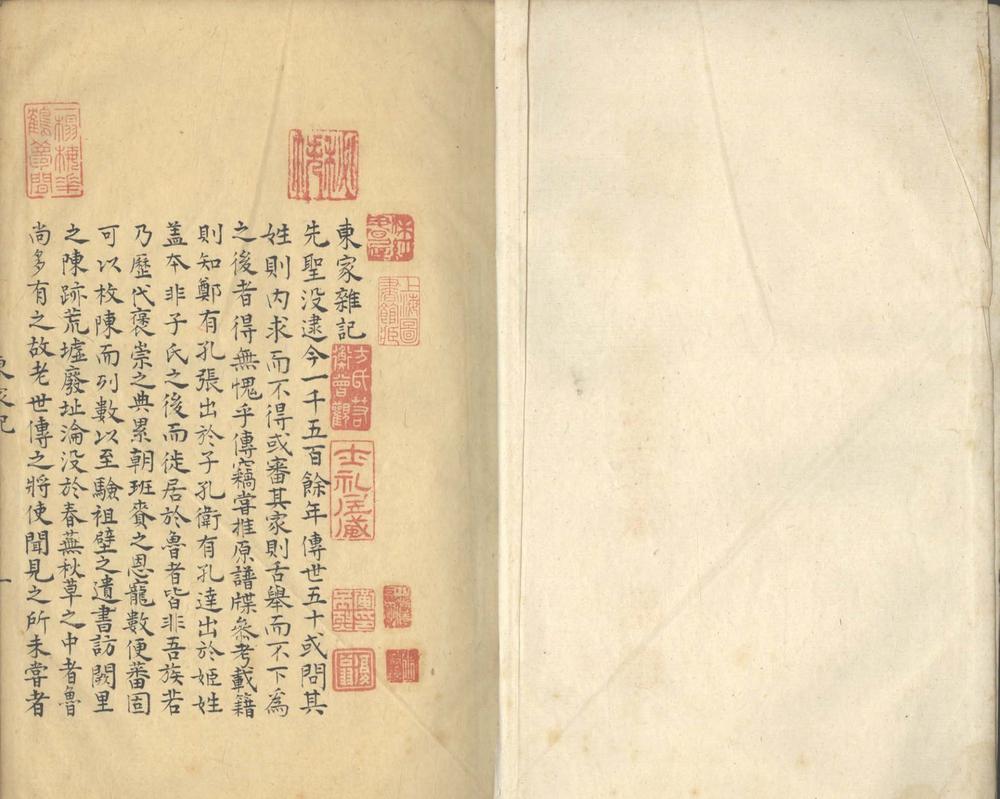 東家雜記
先聖没逮今一千五百餘年傳世五十或問其
姓則内求而不得或審其家則舌舉而不下為
之後者得無愧乎傳竊嘗推原譜牒叅考載籍
則知鄭有孔張出於子孔衛有孔達出於姬姓
盖夲非子氏之後而徙居於魯者皆非吾族若
乃歷代褒崇之典累朝班賚之恩寵數便蕃固
可以枚陳而列數以至驗祖壁之遺書訪闕里
之陳跡荒墟廢址淪没於春蕪秋草之中者魯
尚多有之故老世傳之將使聞見之所未嘗者
東家記
一
一榻梅花
鶴夢間
上海圖
書館藏
方氏若
蘅曾觀
士礼居藏